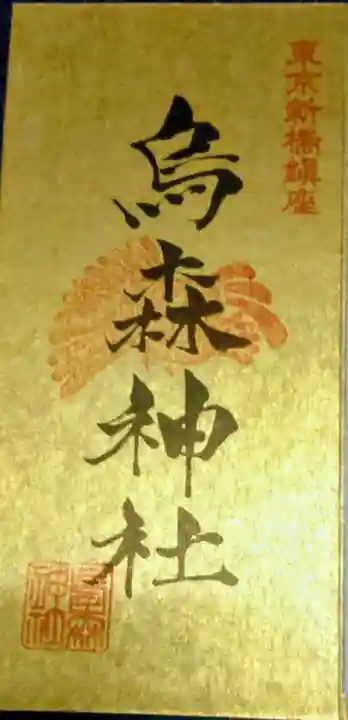 東京新橋鎮座
烏森神社
烏森神社